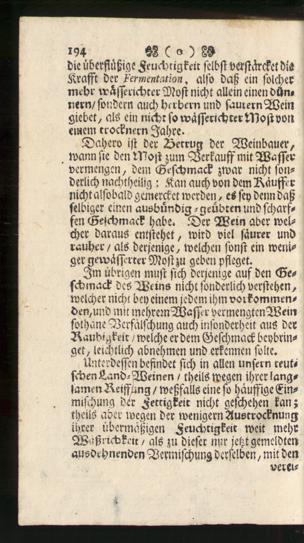 194 ( o )
die überflüßige Feuchtigkeit selbst verstärcket die
Krafft der Fermentation, also daß ein solcher
mehr wässerichter Most nicht allein einen dün-
nern/ sondern auch herbern und saurern Wein
giebet, als ein nicht so wässerichter Most von
einem trocknern Jahre.
Dahero ist der Betrug der Weinbauer,
wann sie den Most zum Verkauff mit Wasser
vermengen, dem Geschmack zwar nicht son-
derlich nachtheilig: Kan auch von dem Käuffer
nicht alsobald gemercket werden, es sey denn daß
selbiger einen ausbündig-geübten und scharf-
fen Geschmack habe. Der Wein aber wel-
cher daraus entstehet, wird viel säurer und
rauher/ als derjenige, welchen sonst ein weni-
ger gewässerter Most zu geben pfleget.
Im übrigen muß sich derjenige auf den Ge-
schmack des Weins nicht sonderlich verstehen,
welcher nicht bey einem jedem ihm vorkommen-
den, und mit mehrern Wasser vermengten Wein
sothane Verfälschung auch insonderheit aus der
Rauhigkeit/ welche er dem Geschmack beybrin-
get, leichtlich abnehmen und erkennen solte.
Unterdessen befindet sich in allen unsern teut-
schen Land-Weinen/ theils wegen ihrer lang-
samen Reiffung/ weßfalls eine so häuffige Ein-
mischung der Fettigkeit nicht geschehen kan;
theils aber wegen der wenigern Austrocknung
ihrer übermäßigen Feuchtigkeit weit mehr
Wäßrichkeit/ als zu dieser nur jetzt gemeldten
ausdehnenden Vermischung derselben, mit den
verei-